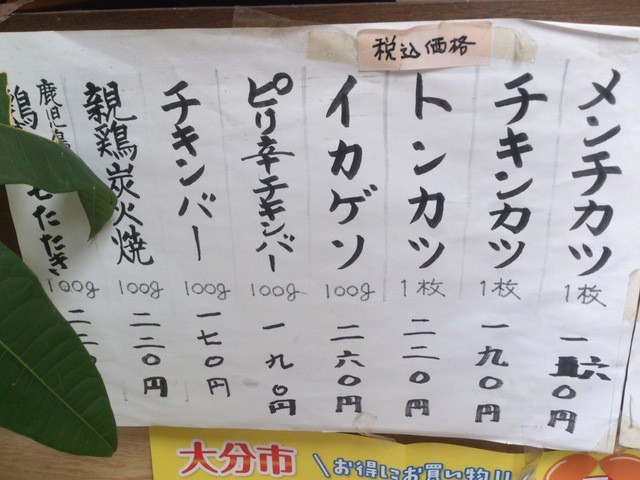 税込価格
メンチカツ
1枚
一六0円
チキンカツ
1枚
一九0円
トンカツ
1枚
二二0円
イカゲソ
100g
二六0円
ピリ辛チキンバー
100g
一九0円
チキンバー
100g
一七0円
親鶏炭火焼
100g
二二0円
鹿児島
鶏
もたたき
100g
大分市
お得にお買い物!!